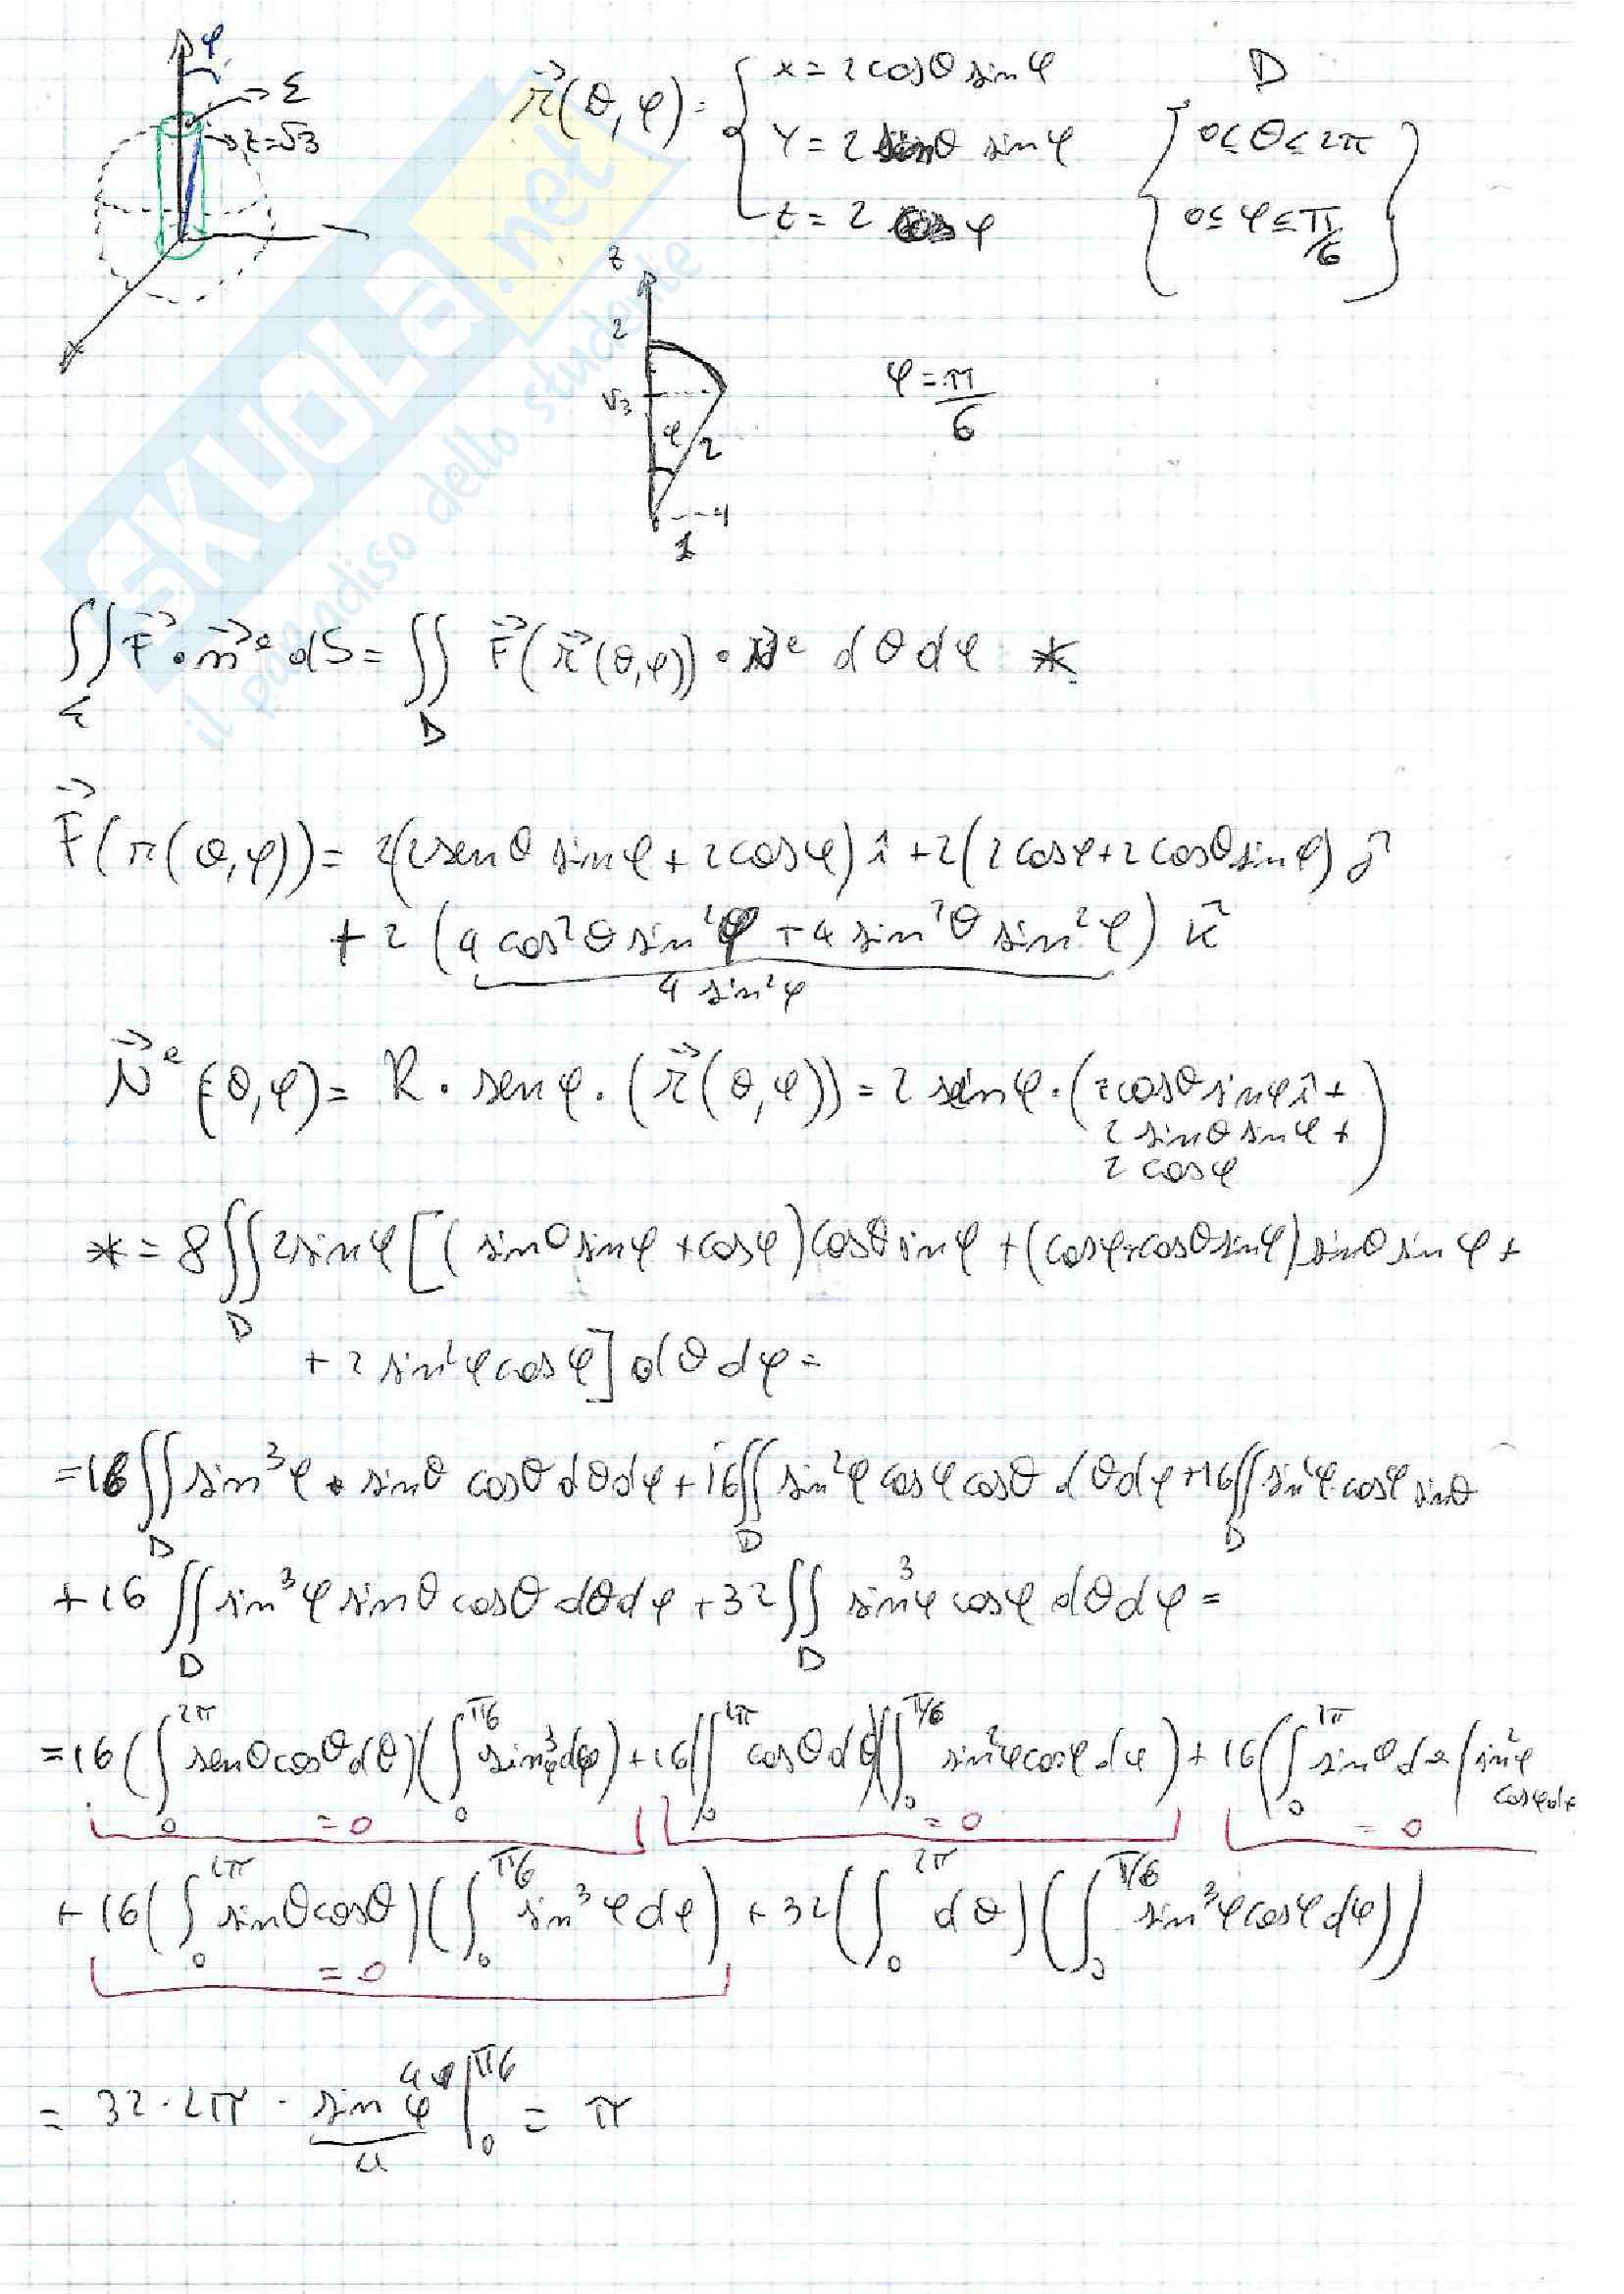 φ
Σ
z=√3
r⃗(θ,φ)= { x=2cosθ sinφ
y=2 sinθ sinφ
z=2 cosφ
D
{ 0≤θ≤2π
0≤φ≤π/6 }
z
2
√3
φ
2
1
φ=π/6
∬_Σ F⃗·n⃗ᵉ dS= ∬_D F⃗(r⃗(θ,φ))·N⃗ᵉ dθdφ *
F⃗(r(θ,φ))= 2(2senθ sinφ+2cosφ) î+2(2cosφ+2cosθsinφ) ĵ
+2(4cos²θ sin²φ+4sin²θ sin²φ) k̂
4 sin²φ
N⃗ᵉ(θ,φ)= R·senφ·(r⃗(θ,φ))=2 sinφ·(2cosθsinφ î+
2 sinθ sinφ+
2 cosφ)
*=8∬_D 2sinφ[(sinθsinφ+cosφ)cosθsinφ+(cosφ+cosθsinφ)sinθ sinφ+
+2 sin²φcosφ]dθdφ=
=16∬_D sin³φ·sinθ cosθdθdφ+16∬_D sin²φcosφcosθ dθdφ+16∬_D sin²φcosφ sinθ
+16∬_D sin³φ sinθ cosθ dθdφ+32∬_D sin³φ cosφ dθdφ=
=16(∫₀^2π senθcosθdθ)(∫₀^π/6 sin³φdφ)+16(∫₀^2π cosθdθ)(∫₀^π/6 sin²φcosφdφ)+16(∫₀^2π sinθdθ∫sin²φ
cosφdφ
=0 =0 =0
+16(∫₀^2π sinθcosθ)(∫₀^π/6 sin³φdφ)+32(∫₀^2π dθ)(∫₀^π/6 sin³φcosφdφ))
=0
= 32·2π·sin⁴φ/4|₀^π/6 = π
SKUOLA.net
il paradiso dello studente